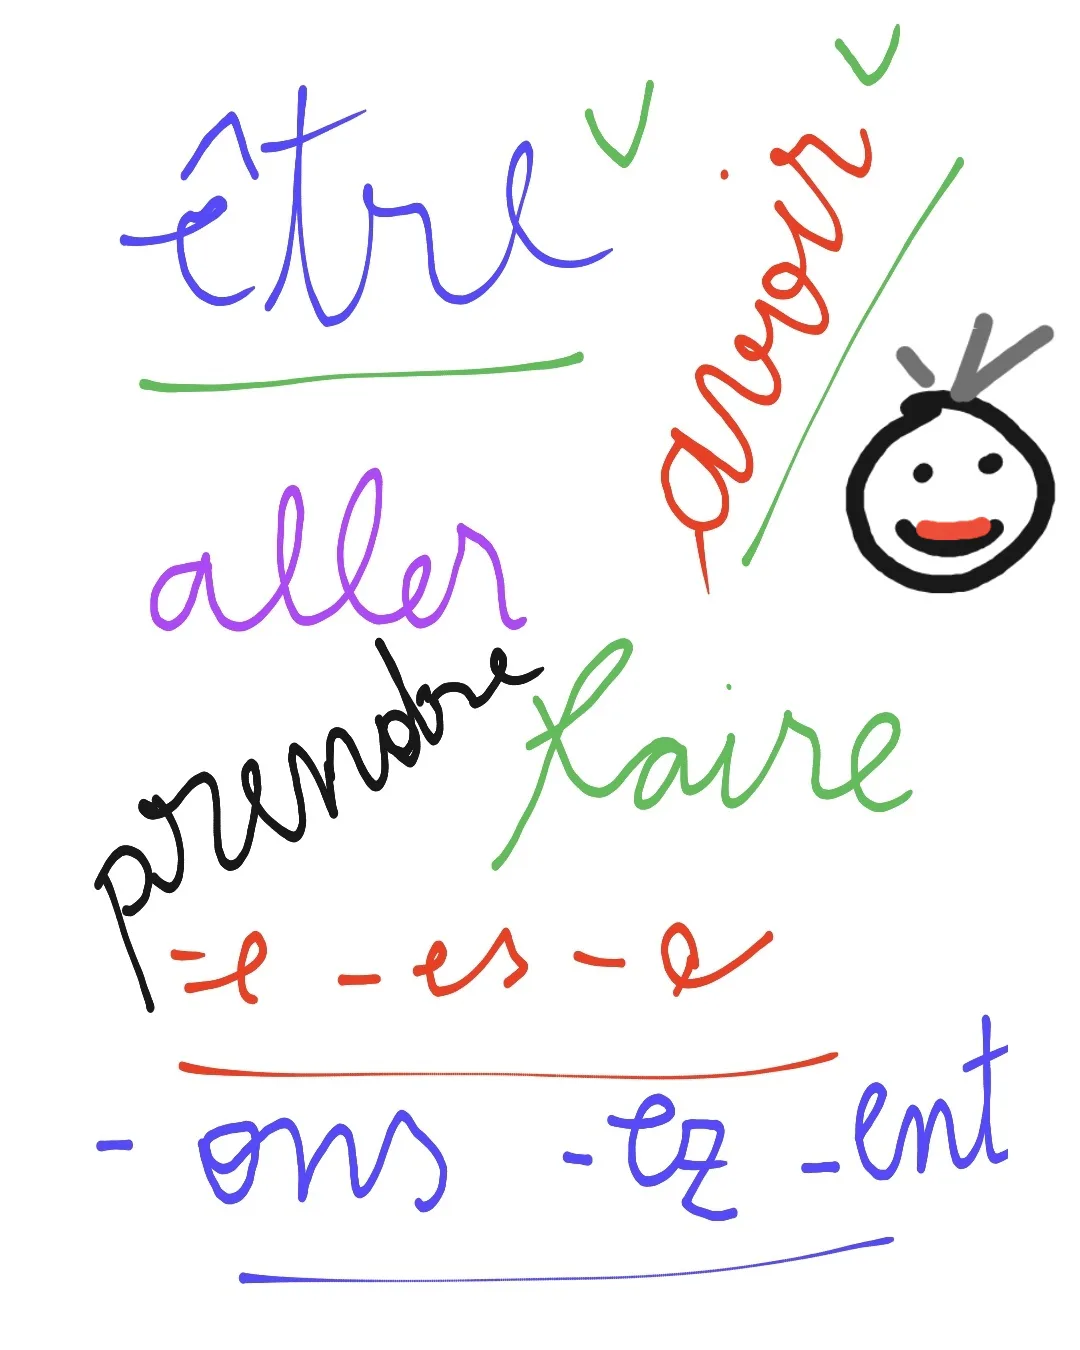 être
avoir
aller
prendre
faire
-e -es -e
-ons -ez -ent